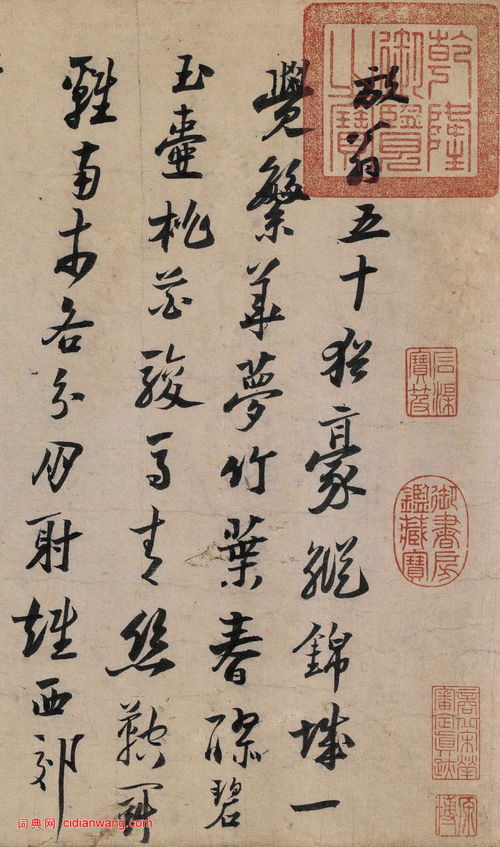 放翁五十猶豪縱錦城一
覺繁華夢竹葉春醪碧
玉壺桃花駿馬青絲鞚鬥
雞南市各分朋射雉西郊
乾隆御覽之寶
石渠寶笈
御書房鑑藏寶
词典网 cidianwang.com